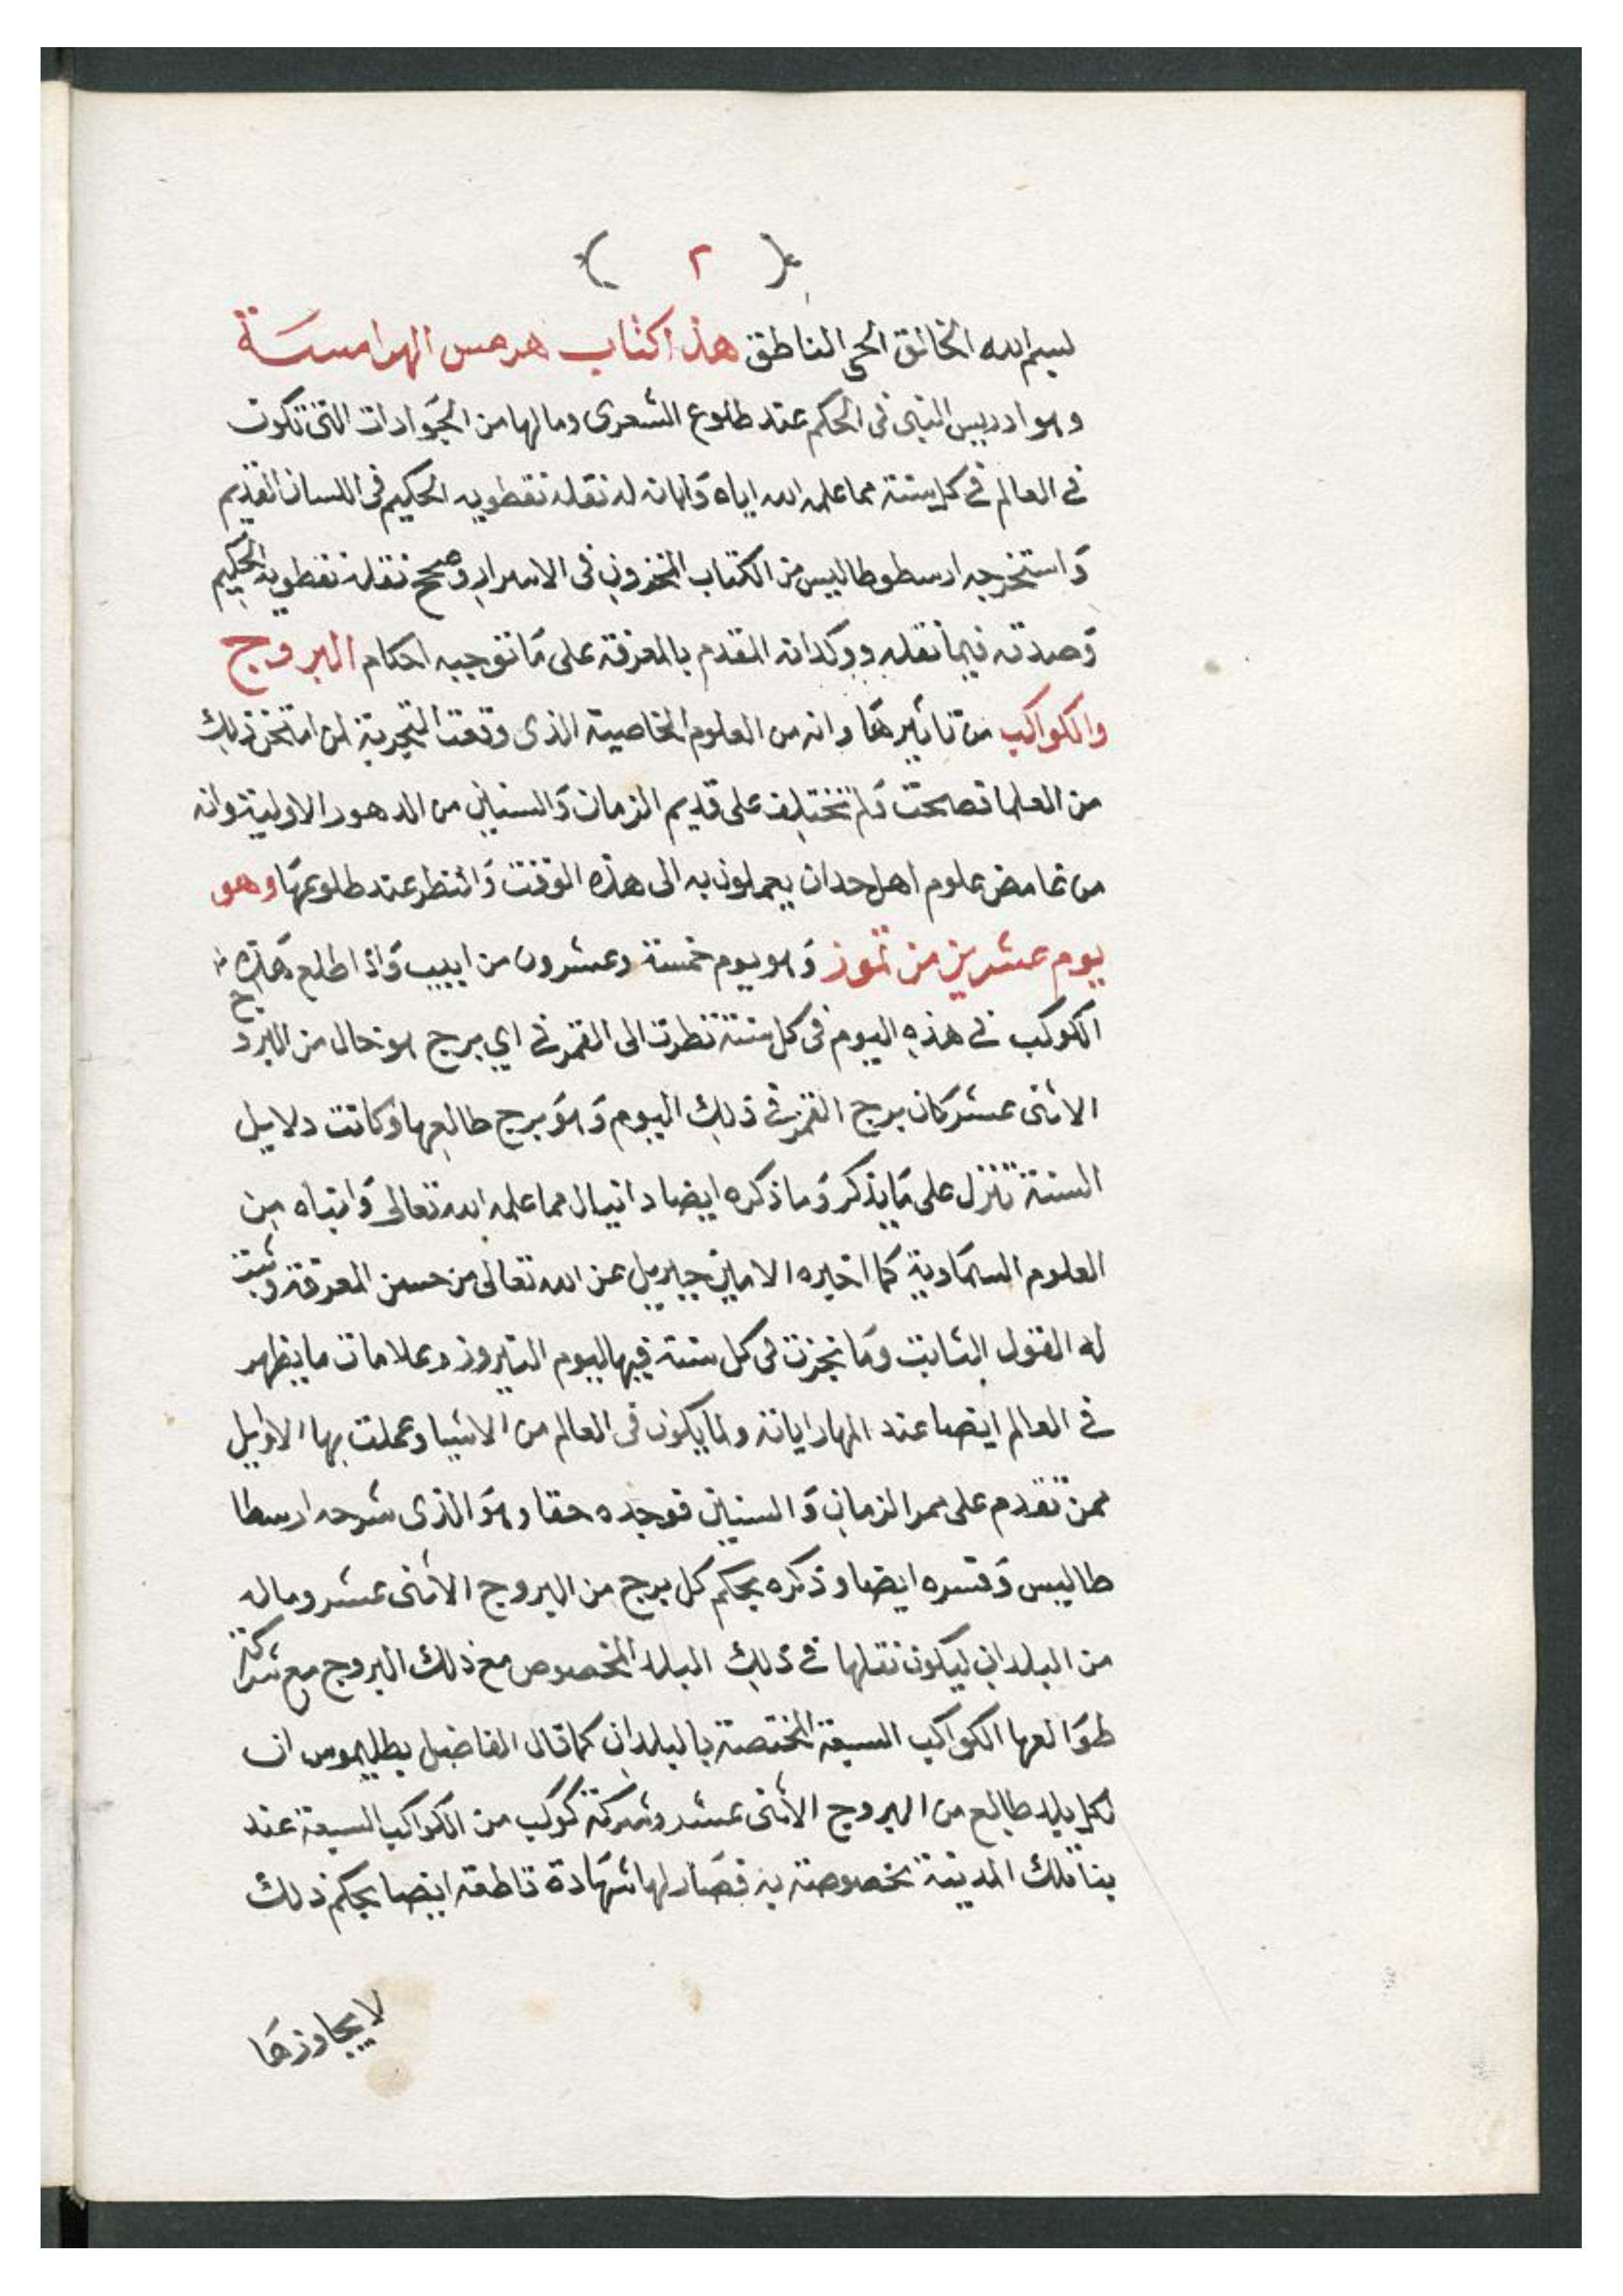 ( ٢ )
لبسم الله الخالق الحي الناطق هذا كتاب هرمس الهرامسة
وهو ادريس النبي في الحكم عند طلوع الشعرى وما لها من الحوادات التي تكون
في العالم في كل سنة مما علمه الله اياه وامانه له نقله نفطويه الحكيم في اللسان القديم
واستخرجه ارسطوطاليس من الكتاب المخزون في الاسرار وصحح نقله نفطويه الحكيم
وصدقه فيما نقله ووكدانه المقدم بالمعرفة على ما توجبه احكام البروج
والكواكب من تاثيرها وانه من العلوم الخاصية الذى وقعت التجربة لمن امتحن ذلك
من العلما فصاحت ولم تختلف على قديم الزمان والسنين من الدهور الاولية وانه
من غامض علوم اهل حدان يعملون به الى هذه الوقت وانتظر عند طلوعها وهو
يوم عشرين من تموز وهو يوم خمسة وعشرون من ابيب واذا طلع هذه
الكوكب في هذه اليوم في كل سنة نظرت الى القمر في اي برج هو حال من البروج
الاثنى عشر كان برج القمر في ذلك اليوم وهو برج طالعها وكانت دلايل
السنة تنزل على ما يذكر وما ذكره ايضا دانيال مما علمه الله تعالى وانباه من
العلوم السماوية كما اخبره الامين جبريل عن الله تعالى من حسن المعرفة وثبت
له القول الثابت وما نجزت في كل سنة فيها ليوم النيروز وعلامات ما يظهر
في العالم ايضا عند المهارايانه ولما يكون في العالم من الاشيا وعملت بها الاوايل
ممن تقدم على ممر الزمان والسنين فوجده حقا وهو الذى شرحه ارسطا
طاليس وفسره ايضا وذكره بحكم كل برج من البروج الاثنى عشر وماله
من البلدان ليكون نقلها في ذلك البلد المخصوص مع ذلك البروج مع شركة
طوالعها الكواكب السبعة المختصة بالبلدان كما قال الفاضل بطليموس ان
لكل بلد طالع من البروج الاثنى عشر وشركة كوكب من الكواكب السبعة عند
بنا تلك المدينة مخصوصة به فصار لها شهادة قاطعة ايضا بحكم ذلك
لا يجاوزها